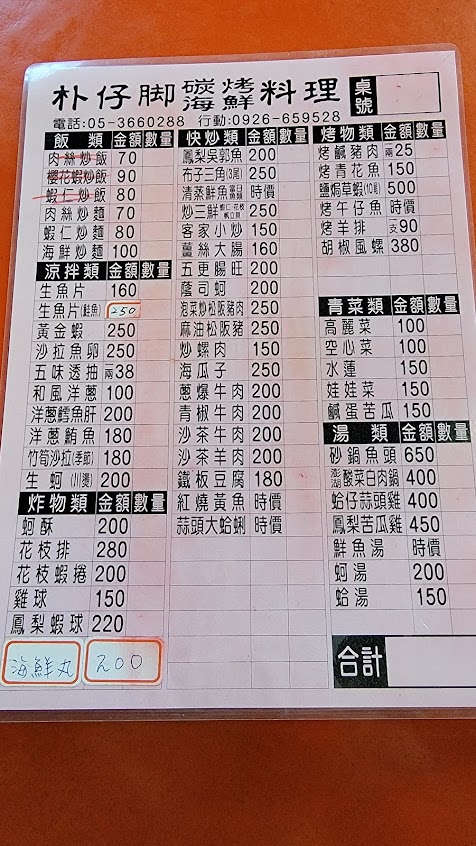 朴仔脚 碳烤海鮮 料理 桌號
電話:05-3660288 行動:0926-659528
飯類 金額 數量
肉絲炒飯 70
櫻花蝦炒飯 90
蝦仁炒飯 80
肉絲炒麵 70
蝦仁炒麵 80
海鮮炒麵 100
涼拌類 金額 數量
生魚片 160
生魚片(鮭魚) 250
黃金蝦 250
沙拉魚卵 250
五味透抽 兩38
和風洋蔥 100
洋蔥鱈魚肝 200
洋蔥鮪魚 180
竹筍沙拉(季節) 180
生蚵(川燙) 200
炸物類 金額 數量
蚵酥 200
花枝排 280
花枝蝦捲 200
雞球 150
鳳梨蝦球 220
海鮮丸 200
快炒類 金額 數量
鳳梨吳郭魚 200
布子三角(3尾) 250
清蒸鮮魚 時價
炒三鮮 250
客家小炒 150
薑絲大腸 160
五更腸旺 200
蔭豉蚵 200
泡菜炒松阪豬肉 250
麻油松阪豬 250
炒螺肉 150
海瓜子 250
蔥爆牛肉 200
青椒牛肉 200
沙茶牛肉 200
沙茶羊肉 200
鐵板豆腐 180
紅燒黃魚 時價
蒜頭大蛤蜊 時價
烤物類 金額 數量
烤鹹豬肉 兩25
烤青花魚 150
鹽焗草蝦(10尾) 500
烤午仔魚 時價
烤羊排 支90
胡椒風螺 380
青菜類 金額 數量
高麗菜 100
空心菜 100
水蓮 150
娃娃菜 150
鹹蛋苦瓜 150
湯類 金額 數量
砂鍋魚頭 650
澎湖酸菜白肉鍋 400
蛤仔蒜頭雞 400
鳳梨苦瓜雞 450
鮮魚湯 時價
蚵湯 200
蛤湯 150
合計